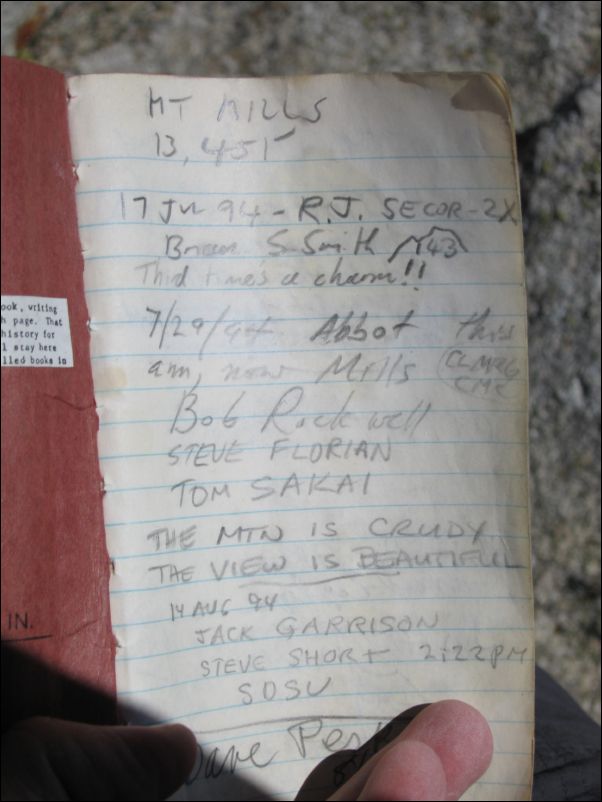 ook, writing
h page. That
history for
l stay here
lled books in
IN.
MT MILLS
13,451
17 Jul 94 - R.J. SECOR - 2X
Brian S. Smith #43
Third time's a charm!!
7/29/94 Abbot this
am, now Mills CLMRG
CMC
Bob Rockwell
STEVE FLORIAN
TOM SAKAI
THE MTN IS CRUDY
THE VIEW IS BEAUTIFUL
14 AUG 94
JACK GARRISON
STEVE SHORT 2:22PM
SOSU
Dave